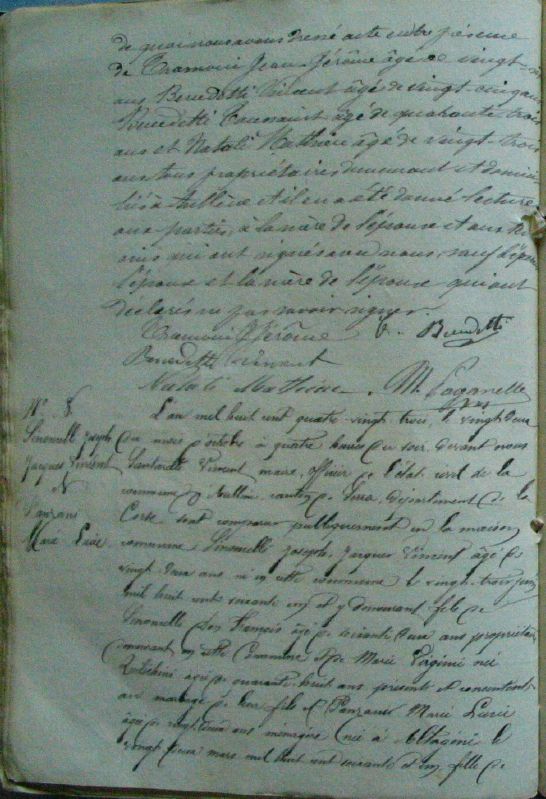 de quoi nous avons dressé acte en présence
de Tramoni Jean Jérôme âgé de vingt
ans Benedetti Vincent âgé de vingt cinq ans
Benedetti Toussaint âgé de quarante trois
ans et Natali Mathieu âgé de vingt-trois
ans tous propriétaires demeurant et domici
liés à et il en a été donné lecture
aux parties, à la mère de l'épouse et aux té
moins qui ont signé avec nous, sauf l'époux
l'épouse et la mère de l'épouse qui ont
déclaré ne pas savoir signer.
Tramoni J Jérôme Benedetti
Benedetti Vincent
Natali Mathieu M.
N° 8
Joseph
Jacques Vincent
&
Panzani
Marie Lucie
L'an mil huit cent quatre-vingt trois, le vingt deux
du mois d'octobre à quatre heures du soir, devant nous
Vincent maire, officier de l'état civil de la
commune canton de département de la
Corse sont comparus publiquement en la maison
commune Joseph, Jacques Vincent âgé de
vingt deux ans né en cette commune le vingt-trois juin
mil huit cent soixante un et y demeurant fils de
François âgé de soixante deux ans propriétaire
demeurant en cette commune et de Marie née
âgée de quarante huit ans présents et consentants
au mariage de leur fils et Panzani Marie Lucie
âgée de vingt deux ans ménagère née à le
vingt deux mars mil huit cent soixante et un, fille de